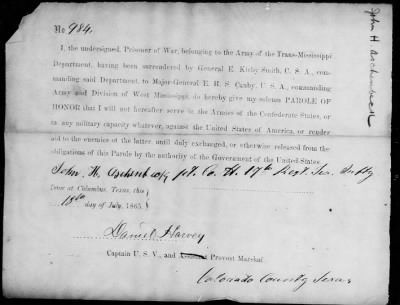 No. 984.
John H. Aschenbeck
I, the undersigned, Prisoner of War, belonging to the Army of the Trans-Mississippi
Department, having been surrendered by General E. Kirby Smith, C. S. A., com-
manding said Department, to Major-General E. R. S. Canby, U. S. A., commanding
Army and Division of West Mississippi, do hereby give my solemn PAROLE OF
HONOR that I will not hereafter serve in the Armies of the Confederate States, or
in any military capacity whatever, against the United States of America, or render
aid to the enemies of the latter, until duly exchanged, or otherwise released from the
obligations of this Parole by the authority of the Government of the United States.
John, H, pvt. Co. H. 17th Regt. Tex.
Done at Columbus, Texas, this
18th
day of July, 1865.
Daniel Harvey
Captain U. S. V., and Assistant Provost Marshal.
Colorado County Texas